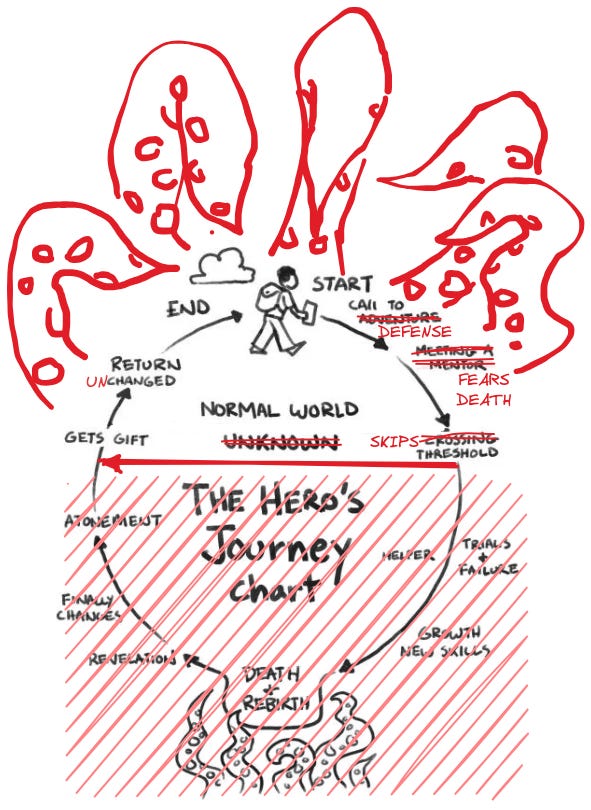 START
CALL TO
ADVENTURE
DEFENSE
MEETING A
MENTOR
FEARS
DEATH
SKIPS CROSSING
THRESHOLD
END
RETURN
UNCHANGED
GETS GIFT
NORMAL WORLD
UNKNOWN
THE HERO'S
Journey
chart
HELPER
TRIALS
+
FAILURE
GROWTH
NEW SKILLS
DEATH
+
REBIRTH
REVELATION
FINALLY
CHANGES
ATONEMENT